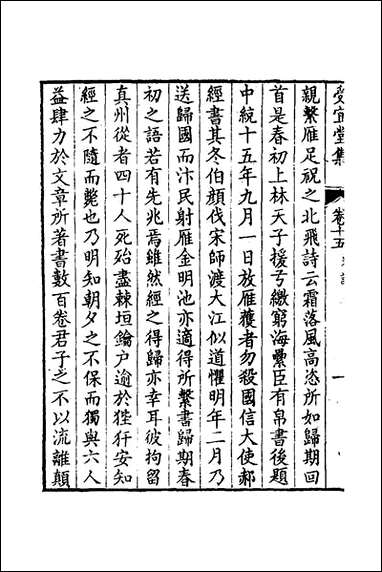 受宜堂集 卷十五
親繫雁足祝之北飛詩云霜落風高恣所如歸期回
首是春初上林天子援弓繳窮海纍臣有帛書後題
中統十五年九月一日放雁獲者勿殺國信大使郝
經書其冬伯顏伐宋師渡大江似道懼明年二月乃
送歸國而汴民射雁金明池亦適得所繫書歸期春
初之語若有先兆焉雖然經之得歸亦幸耳彼拘留
真州從者四十人死殆盡棘垣鑰户逾於狴犴安知
經之不隨而斃也乃明知朝夕之不保而獨與六人
益肆力於文章所著書數百卷君子之不以流離顛